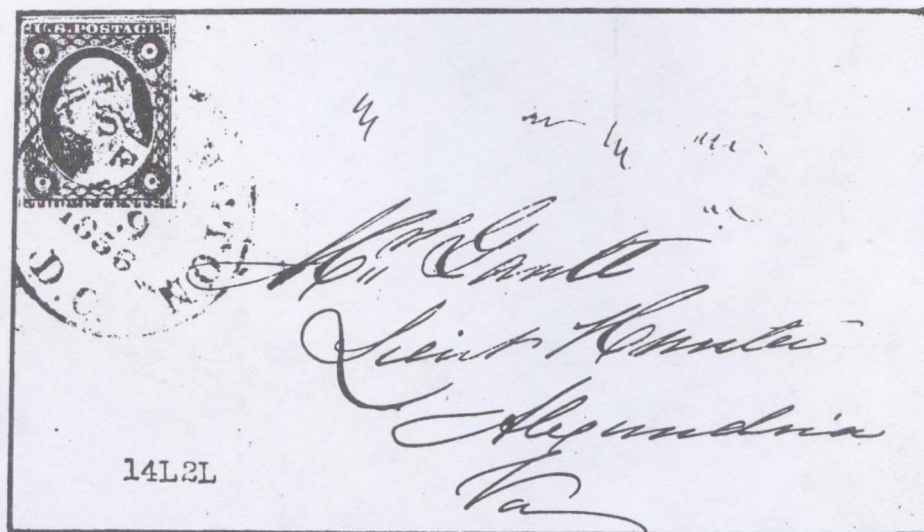 U.S. POSTAGE
S
9
1856
D.C.
Mrs Gantt
Lieut Hunter
Alexandria
Va
14L2L